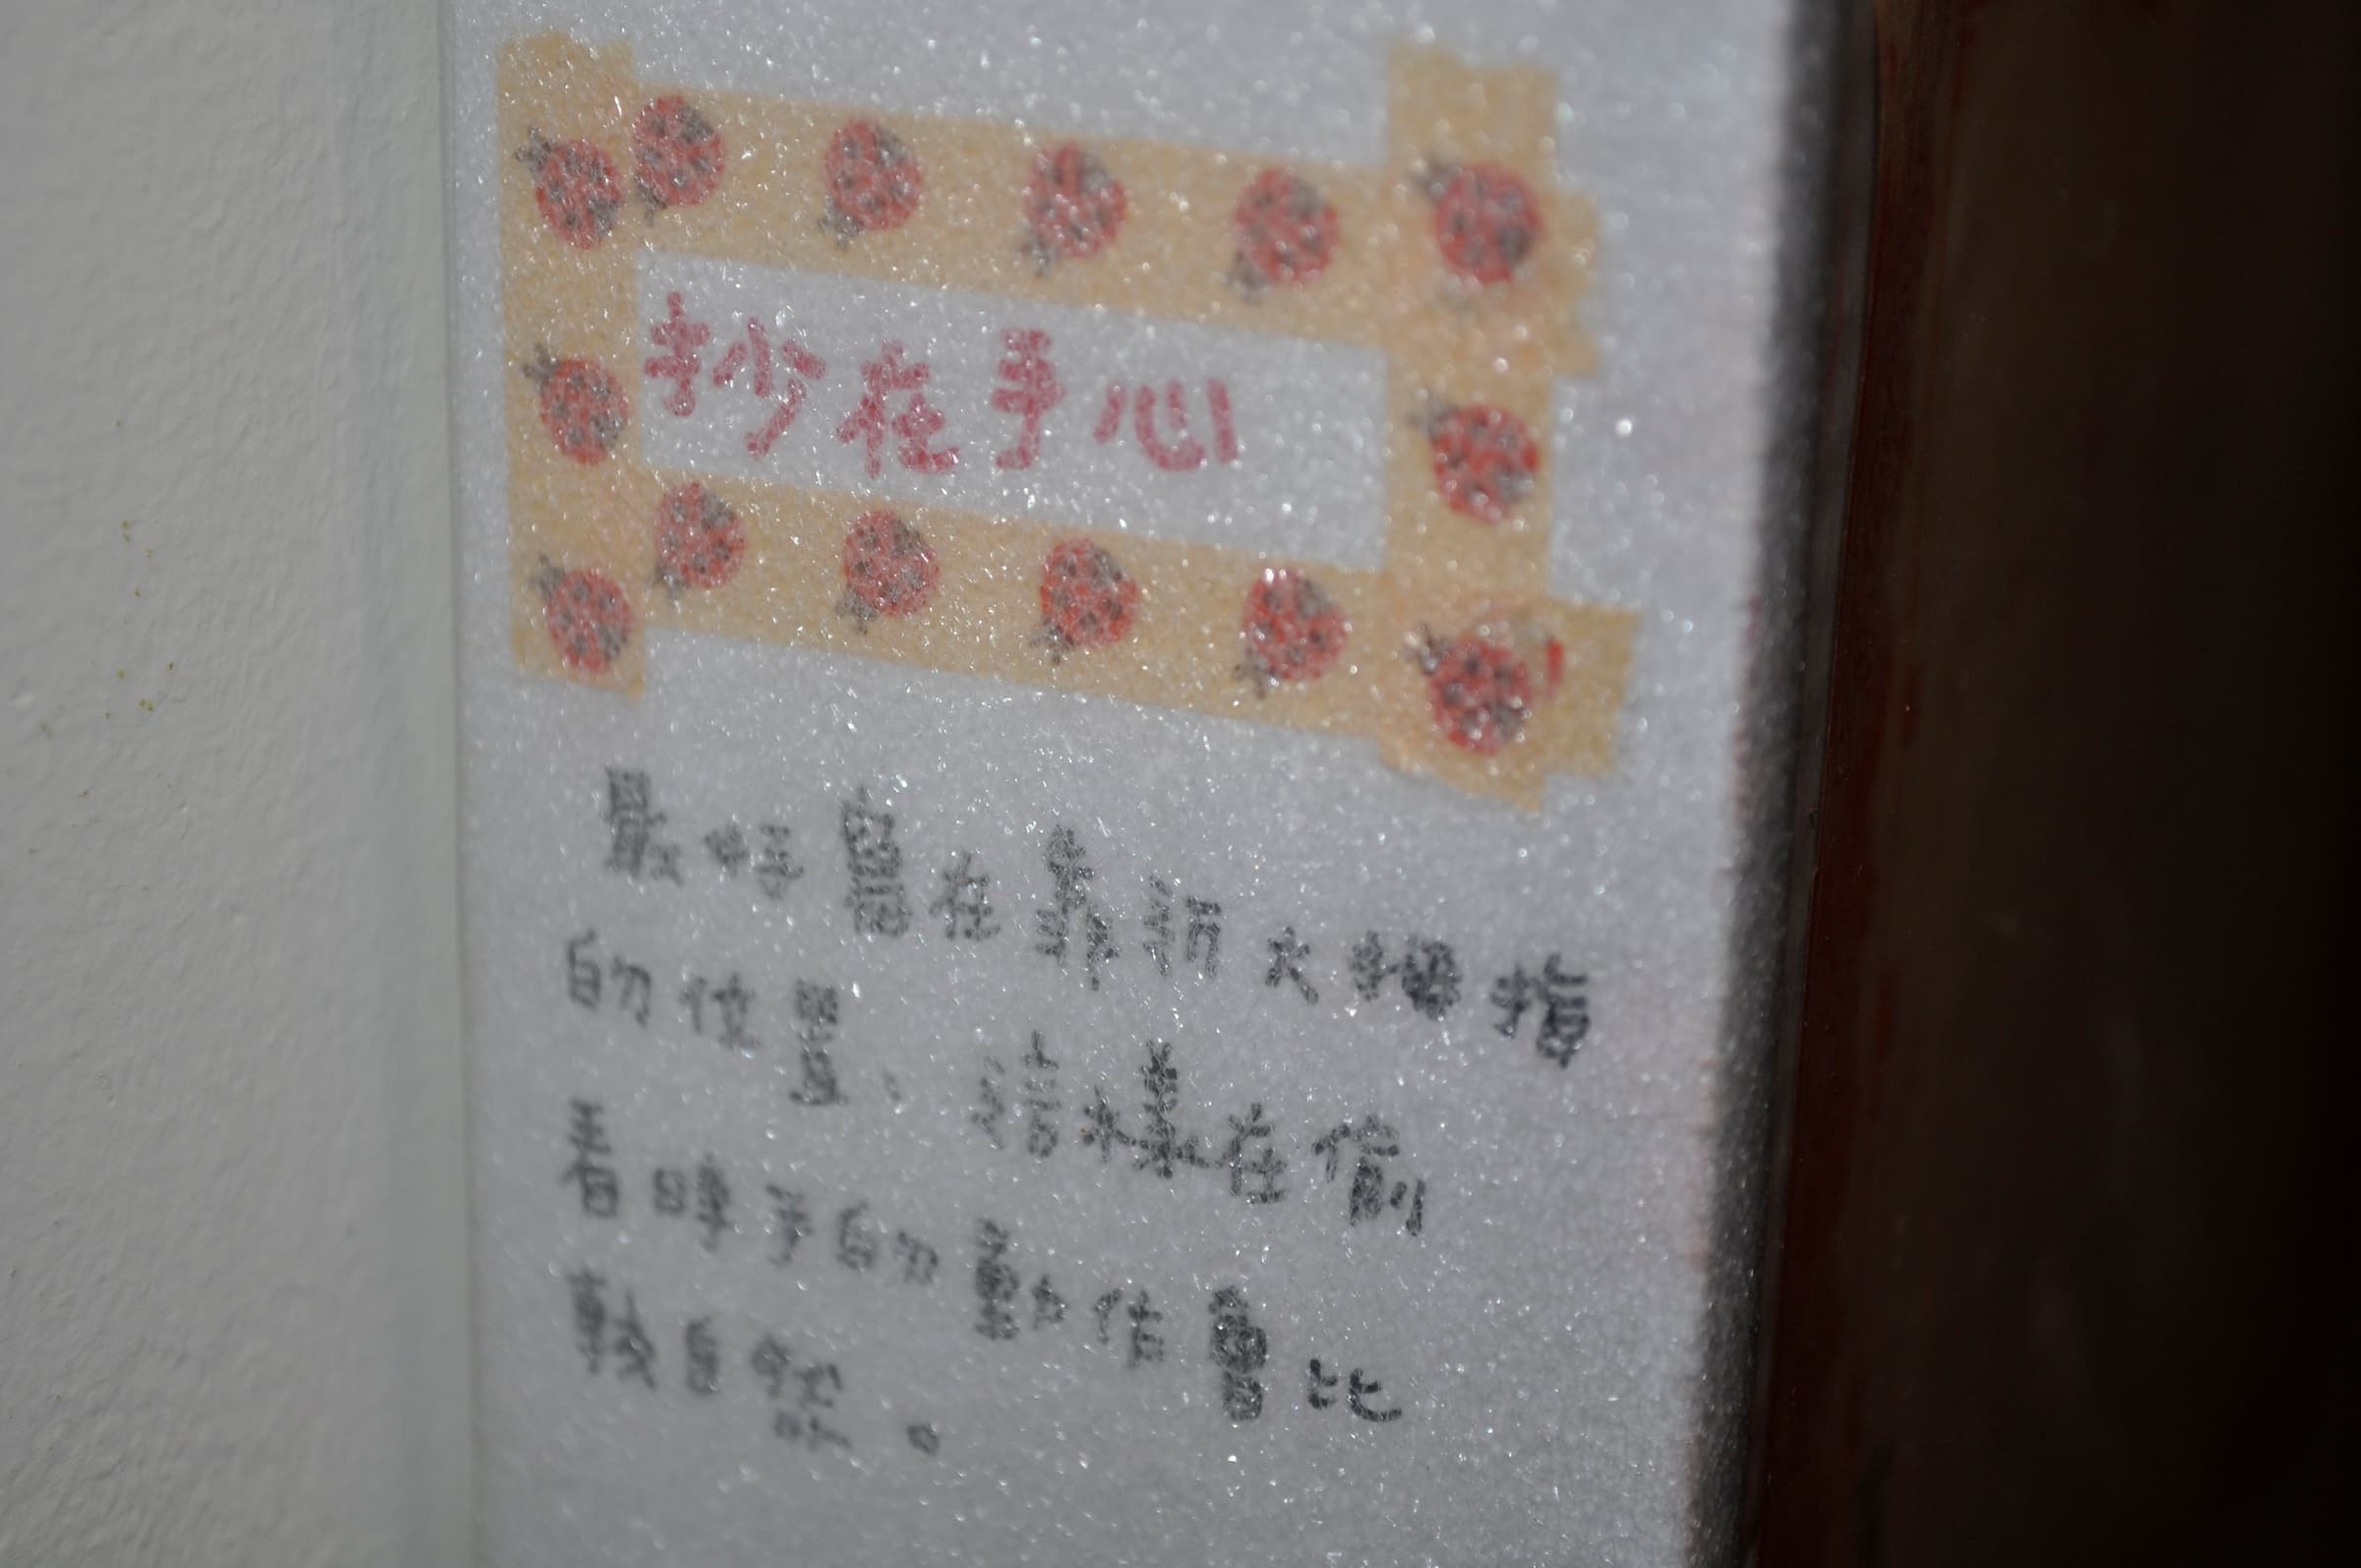 抄在手心
最好寫在靠近大拇指
的位置,這樣在偷
看時手的動作會比
較自然。